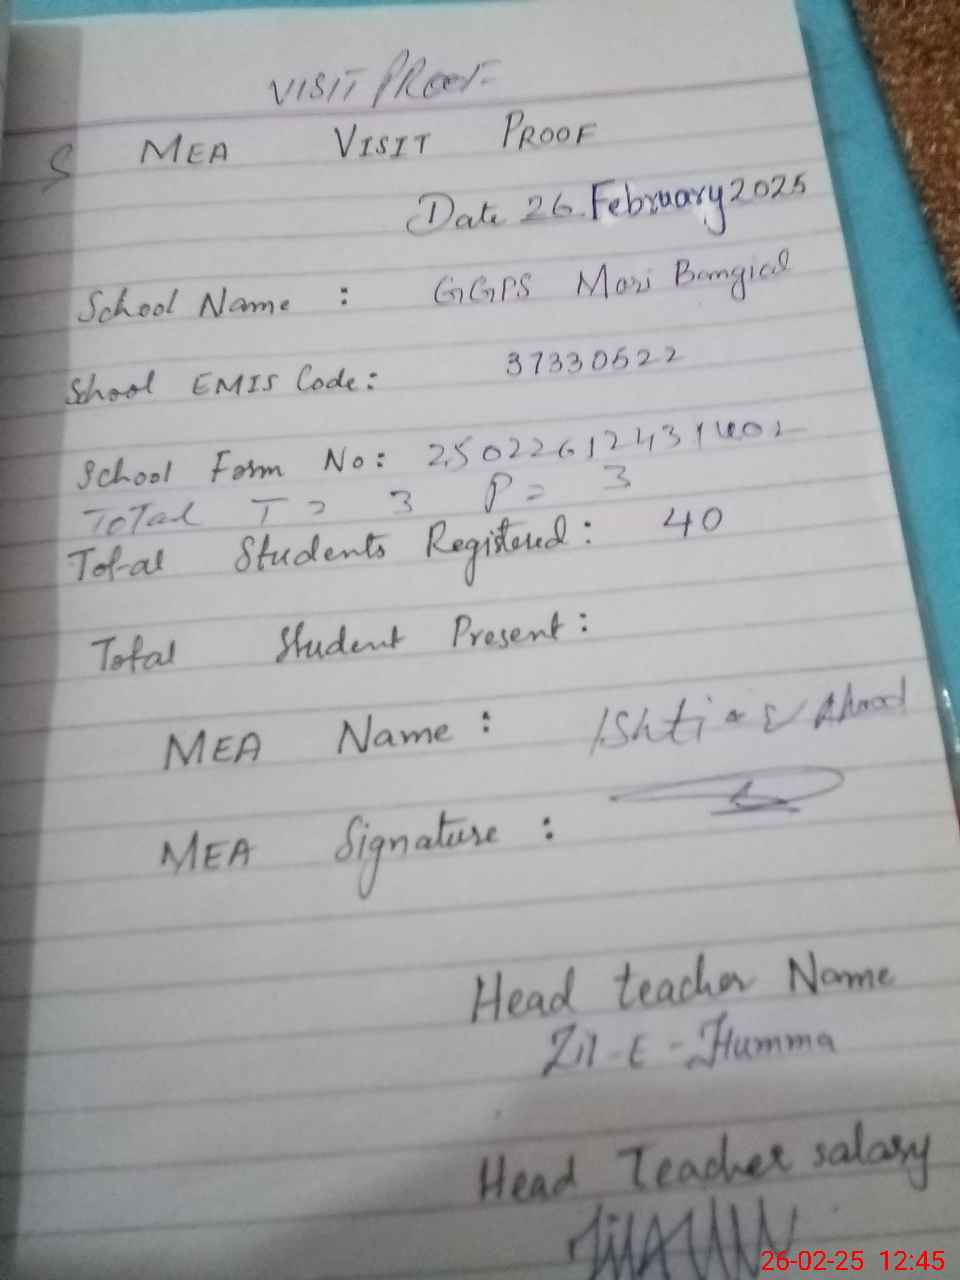 VISIT PROOF
S MEA VISIT PROOF
Date 26 February 2025
School Name : GGPS Mori Bamgial
Shool EMIS Code: 37330522
School Form No: 250226124314
ToTal T = 3 P = 3
Total Students Registered: 40
Total Student Present:
MEA Name : Ishtiaq Ahmad
MEA Signature :
Head teacher Name
Zil-E-Humma
Head Teacher salary
26-02-25 12:45